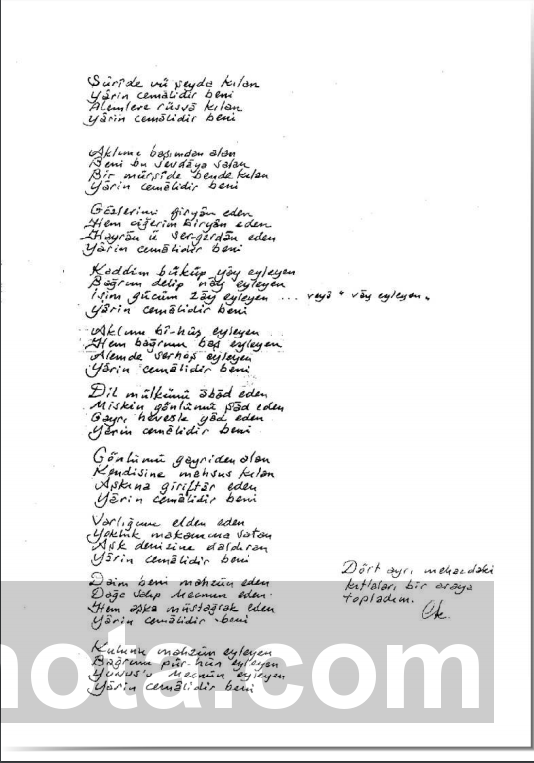 Şûrîde vü şeyda kılan
Yârin cemâlidir beni
Âlemlere rüsvâ kılan
Yârin cemâlidir beni
Aklımı başımdan alan
Beni bu sevdâya salan
Bir mürşide bende kılan
Yârin cemâlidir beni
Gözlerimi giryân eden
Hem ciğerim biryân eden
Hayrân ü ser-gerdân eden
Yârin cemâlidir beni
Kaddim büküp yây eyleyen
Bağrım delip nây eyleyen
İşim gücüm zây eyleyen ... veyâ " vây eyleyen "
Yârin cemâlidir beni
Aklımı bî-hûş eyleyen
Hem bağrımı baş eyleyen
Alemde serhoş eyleyen
Yârin cemâlidir beni
Dil mülkünü âbâd eden
Miskin gönlümü şâd eden
Gayrı hevesle yâd eden
Yârin cemâlidir beni
Gönlümü gayriden alan
Kendisine mahsus kılan
Aşkına giriftâr eden
Yârin cemâlidir beni
Varlığımı elden eden
Yokluk makamına satan
Aşk denizine daldıran
Yârin cemâlidir beni
Daim beni mahzûn eden
Dağa salıp Mecnun eden
Hem aşka müstağrak eden
Yârin cemâlidir beni
Kulunu mahzûn eyleyen
Bağrımı pür-hûn eyleyen
Yunus'u Mecnûn eyleyen
Yârin cemâlidir beni
Dört ayrı mehazdaki
kıt'aları bir araya
topladım.
nota.com